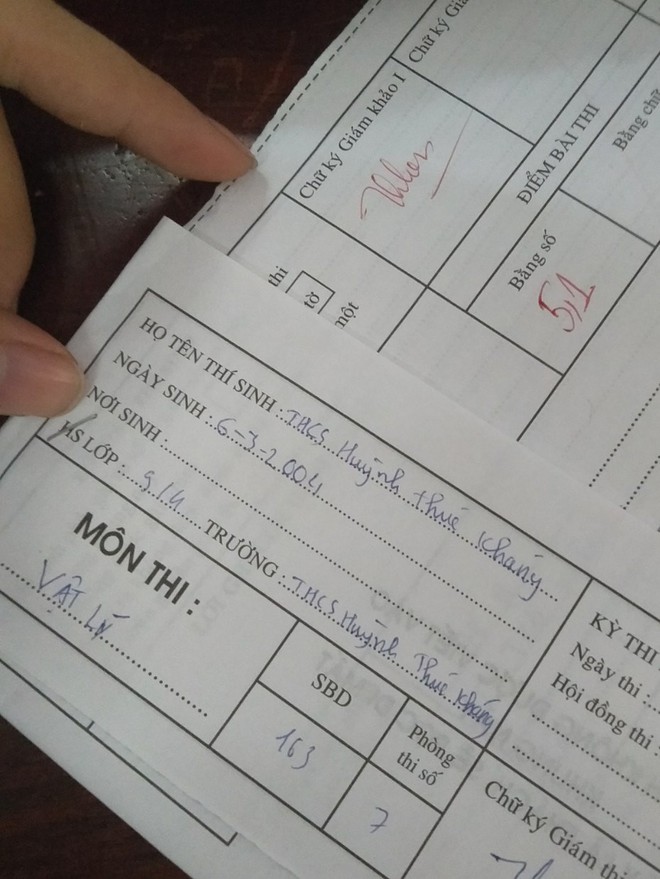 Chữ ký Giám khảo I
Chữ ký Giá
ĐIỂM BÀI THI
Bằng số
Bằng chữ
5,1
thi
tờ
một
HỌ TÊN THÍ SINH : THCS Huỳnh thúc Kháng
NGÀY SINH : 6-3-2004
NƠI SINH :
HS LỚP : 9/4 TRƯỜNG : THCS Huỳnh Thúc Kháng
MÔN THI :
VẬT LÝ
SBD
163
Phòng
thi số
7
KỲ THI
Ngày thi
Hội đồng thi
Chữ ký Giám thị